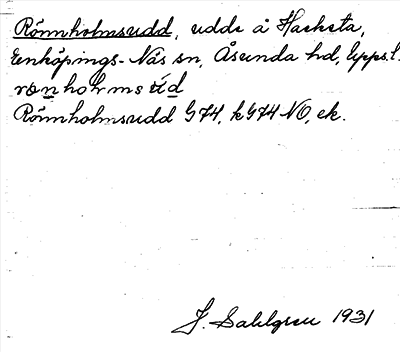 Rönnholmsudd, udde å Hacksta,
Enköpings-Näs sn, Åsunda hd, Upps.l.
Rönnholmsudd G74, kG74 NO, ek.
J. Sahlgren 1931